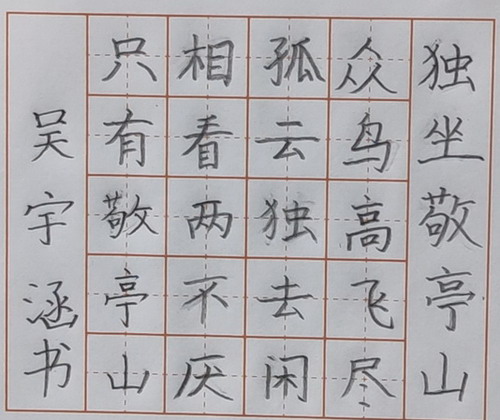 独坐敬亭山
众鸟高飞尽
孤云独去闲
相看两不厌
只有敬亭山
吴宇涵书